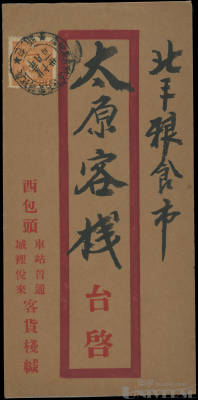 北平粮食市
太原客棧
台啓
西包頭
車站晋通
城裡悅來
客貨棧緘